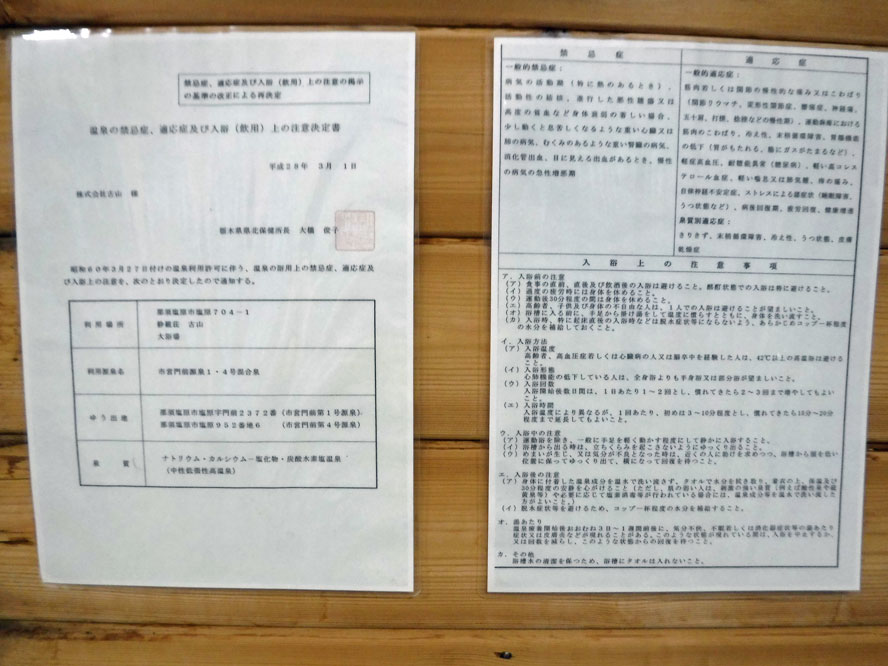 禁忌症、適応症及び入浴（飲用）上の注意の掲示
の基準の改正による再決定
温泉の禁忌症、適応症及び入浴（飲用）上の注意決定書
平成２８年　３月　１日
株式会社古山　様
栃木県県北保健所長　大橋　俊子
昭和６０年３月２７日付けの温泉利用許可に伴う、温泉の浴用上の禁忌症、適応症及
び入浴上の注意を、次のとおり決定したので通知する。
利用場所
那須塩原市塩原７０４－１
静観荘　古山
大浴場
利用源泉名
市営門前源泉１・４号混合泉
ゆう出地
那須塩原市塩原字門前２３７２番（市営門前第１号源泉）
那須塩原市塩原９５２番地６　（市営門前第４号源泉）
泉質
ナトリウム・カルシウム－塩化物・炭酸水素塩温泉
（中性低張性高温泉）
禁忌症
一般的禁忌症：
病気の活動期（特に熱のあるとき）、
活動性の結核、進行した悪性腫瘍又は
高度の貧血など身体衰弱の著しい場合、
少し動くと息苦しくなるような重い心臓又は
肺の病気、むくみのあるような重い腎臓の病気、
消化管出血、目に見える出血があるとき、慢性
の病気の急性増悪期
適応症
一般的適応症：
筋肉若しくは関節の慢性的な痛み又はこわばり
（関節リウマチ、変形性関節症、腰痛症、神経痛、
五十肩、打撲、捻挫などの慢性期）、運動麻痺における
筋肉のこわばり、冷え性、末梢循環障害、胃腸機能
の低下（胃がもたれる、腸にガスがたまるなど）、
軽症高血圧、耐糖能異常（糖尿病）、軽い高コレス
テロール血症、軽い喘息又は肺気腫、痔の痛み、
自律神経不安定症、ストレスによる諸症状（睡眠障害、
うつ状態など）、病後回復期、疲労回復、健康増進
泉質別適応症：
きりきず、末梢循環障害、冷え性、うつ状態、皮膚
乾燥症
入浴上の注意事項
ア．入浴前の注意
（ア）食事の直前、直後及び飲酒後の入浴は避けること。酩酊状態での入浴は特に避けること。
（イ）過度の疲労時には身体を休めること。
（ウ）運動後30分程度の間は身体を休めること。
（エ）高齢者、子供及び身体の不自由な人は、１人での入浴は避けることが望ましいこと。
（オ）浴槽に入る前に、手足から掛け湯をして温度に慣らすとともに、身体を洗い流すこと。
（カ）入浴時、特に起床直後の入浴時などは脱水症状等にならないよう、あらかじめコップ一杯程度
の水分を補給しておくこと。
イ．入浴方法
（ア）入浴温度
高齢者、高血圧症若しくは心臓病の人又は脳卒中を経験した人は、42℃以上の高温浴は避ける
こと。
（イ）入浴形態
心肺機能の低下している人は、全身浴よりも半身浴又は部分浴が望ましいこと。
（ウ）入浴回数
入浴開始後数日間は、１日あたり１～２回とし、慣れてきたら２～３回まで増やしてもよい
こと。
（エ）入浴時間
入浴温度により異なるが、１回あたり、初めは３～10分程度とし、慣れてきたら15分～20分
程度まで延長してもよいこと。
ウ．入浴中の注意
（ア）運動浴を除き、一般に手足を軽く動かす程度にして静かに入浴すること。
（イ）浴槽から出る時は、立ちくらみを起こさないようにゆっくり出ること。
（ウ）めまいが生じ、又は気分が不良となった時は、近くの人に助けを求めつつ、浴槽から頭を低い
位置に保ってゆっくり出て、横になって回復を待つこと。
エ．入浴後の注意
（ア）身体に付着した温泉成分を温水で洗い流さず、タオルで水分を拭き取り、着衣の上、保温及び
30分程度の安静を心がけること（ただし、肌の弱い人は、刺激の強い泉質（例えば酸性泉や硫
黄泉等）や必要に応じて塩素消毒等が行われている場合には、温泉成分等を温水で洗い流した
方がよいこと。）
（イ）脱水症状等を避けるため、コップ一杯程度の水分を補給すること。
オ．湯あたり
温泉療養開始後おおむね３日～１週間前後に、気分不快、不眠若しくは消化器症状等の湯あたり
症状又は皮膚炎などが現れることがある。このような状態が現れている間は、入浴を中止するか、
又は回数を減らし、このような状態からの回復を待つこと。
カ．その他
浴槽水の清潔を保つため、浴槽にタオルは入れないこと。